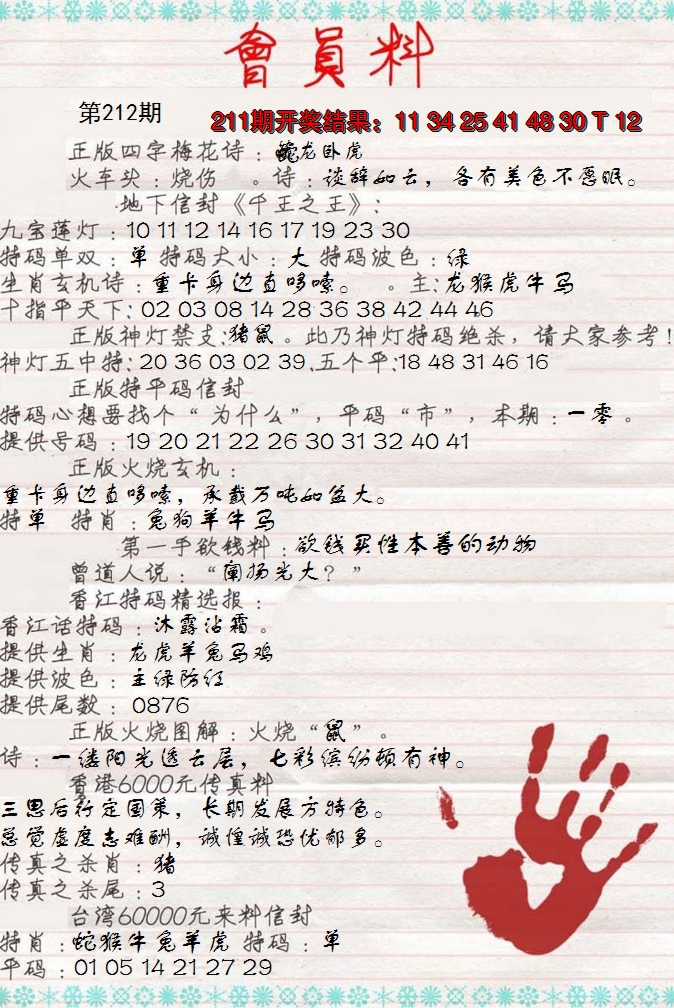 會員料
第212期
211期开奖结果：11 34 25 41 48 30 T 12
正版四字梅花诗：龙卧虎
火车头：烧伤 。诗：谈辞如云，各有美色不愿眠。
地下信封《千王之王》：
九宝莲灯：10 11 12 14 16 17 19 23 30
特码单双：单 特码大小：大 特码波色：绿
生肖玄机诗：重卡身边直哆嗦。 。主：龙猴虎牛马
十指平天下：02 03 08 14 28 36 38 42 44 46
正版神灯禁支：猪鼠。此乃神灯特码绝杀，请大家参考！
神灯五中特：20 36 03 02 39.五个平：18 48 31 46 16
正版特平码信封
特码心想要找个“为什么”，平码“市”，本期：一零。
提供号码：19 20 21 22 26 30 31 32 40 41
正版火烧玄机：
重卡身边直哆嗦，承载万吨如盆大。
特单 特肖：兔狗羊牛马
第一手欲钱料：欲钱买性本善的动物
曾道人说：“阐扬光大？”
香江特码精选报：
香江话特码：沐露沾霜。
提供生肖：龙虎羊兔马鸡
提供波色：主绿防红
提供尾数：0876
正版火烧图解：火烧“鼠”。
诗：一缕阳光透云层，七彩缤纷顿有神。
香港6000元传真料
三思后行定国策，长期发展方特色。
总觉虚度志难酬，诚惶诚恐忧郁多。
传真之杀肖：猪
传真之杀尾：3
台湾60000元来料信封
特肖：蛇猴牛兔羊虎 特码：单
平码：01 05 14 21 27 29